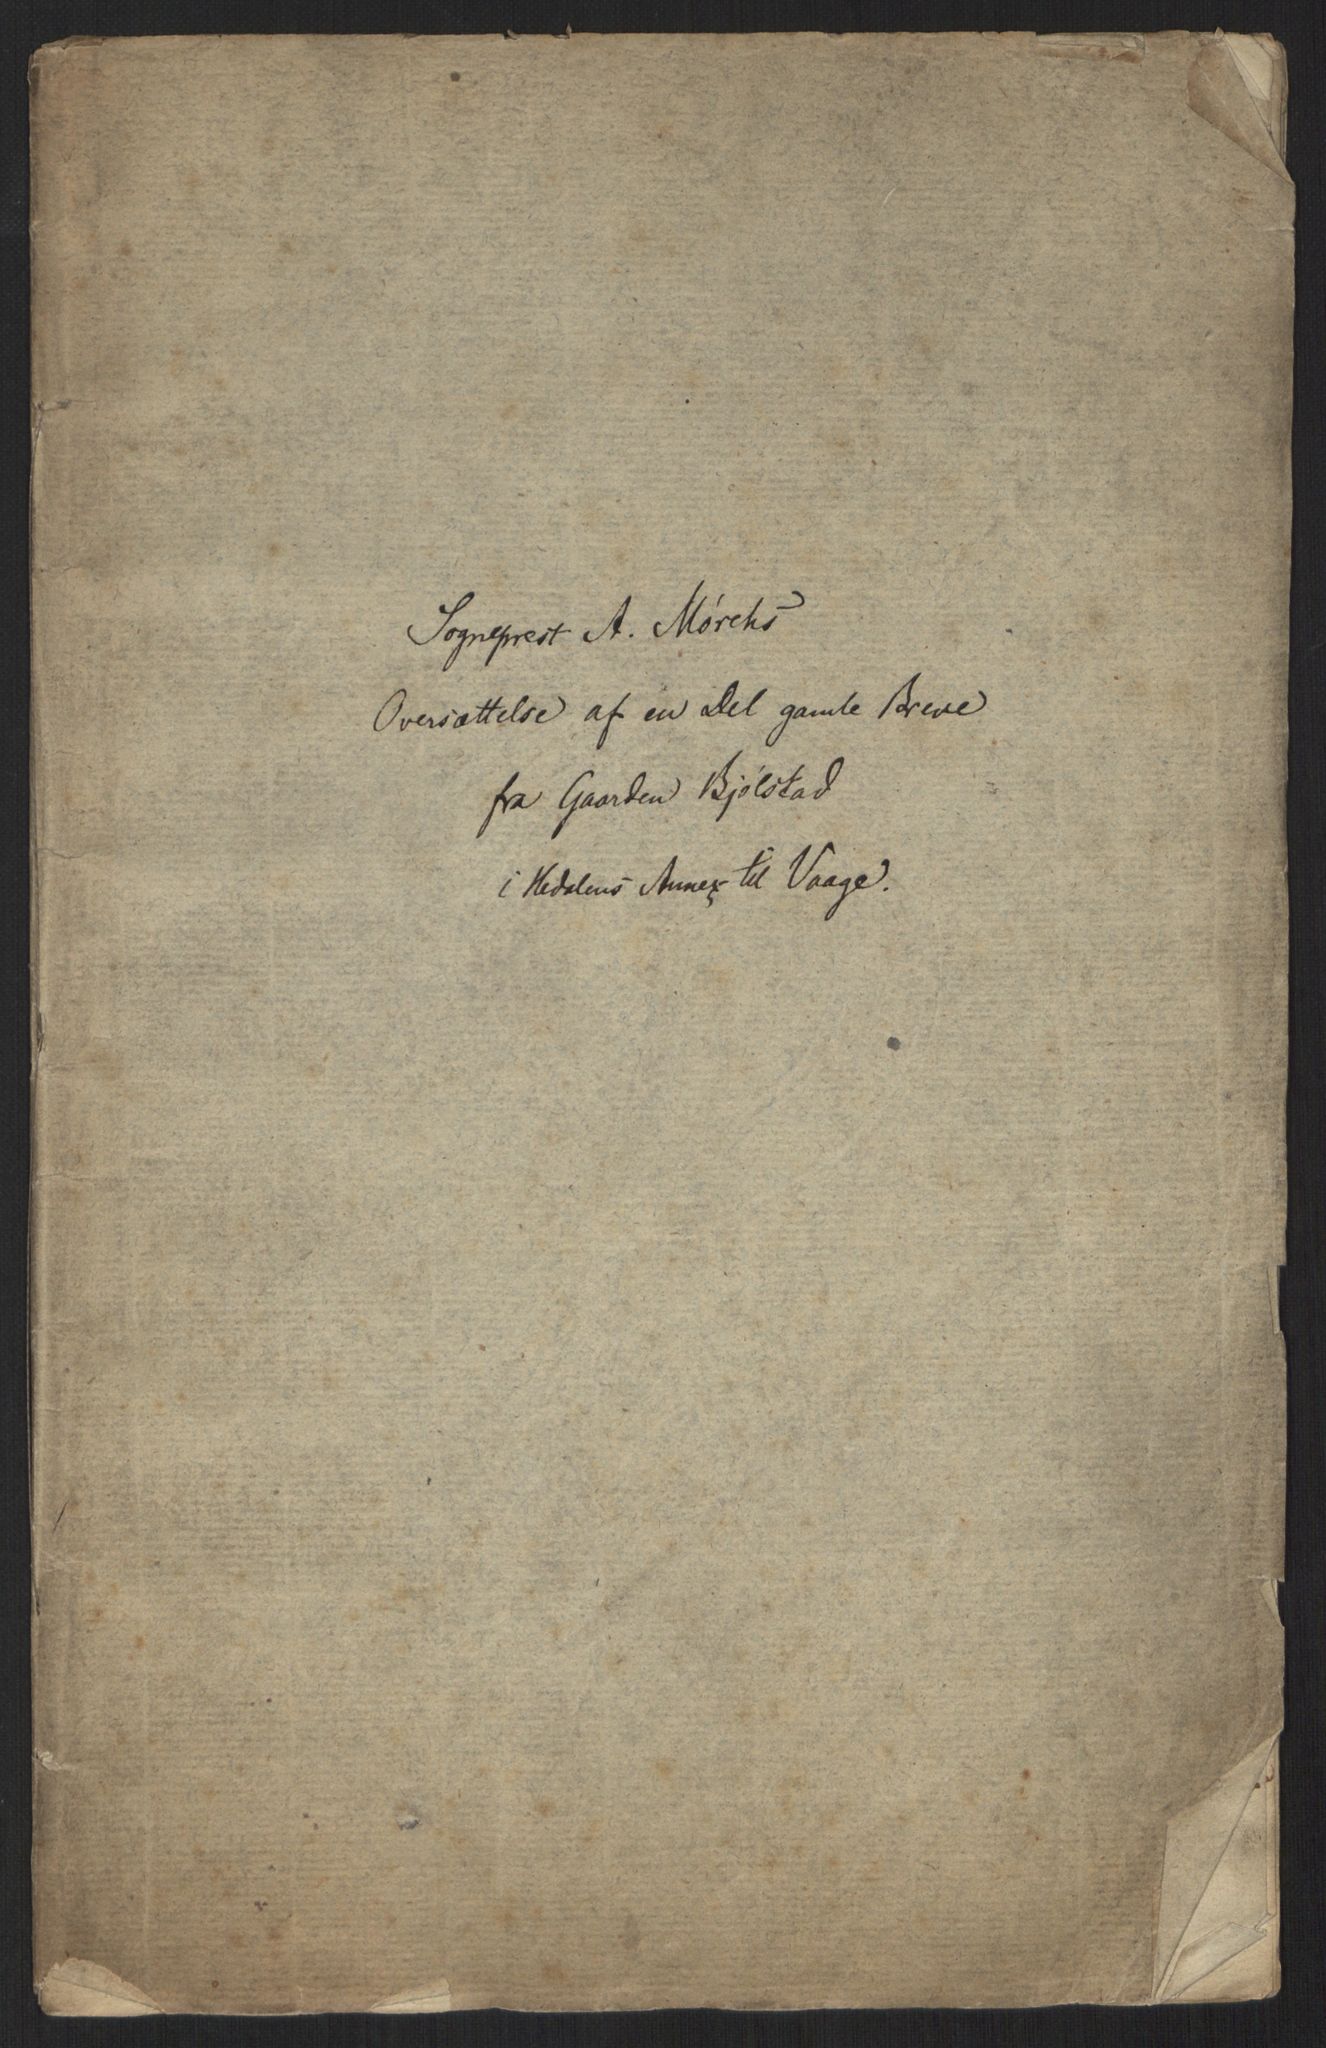 Sogneprest A. Mørchs
Oversættelse af en Del gamle Breve
fra Gaarden Bjølstad
i Hedalens Annex til Vaage.